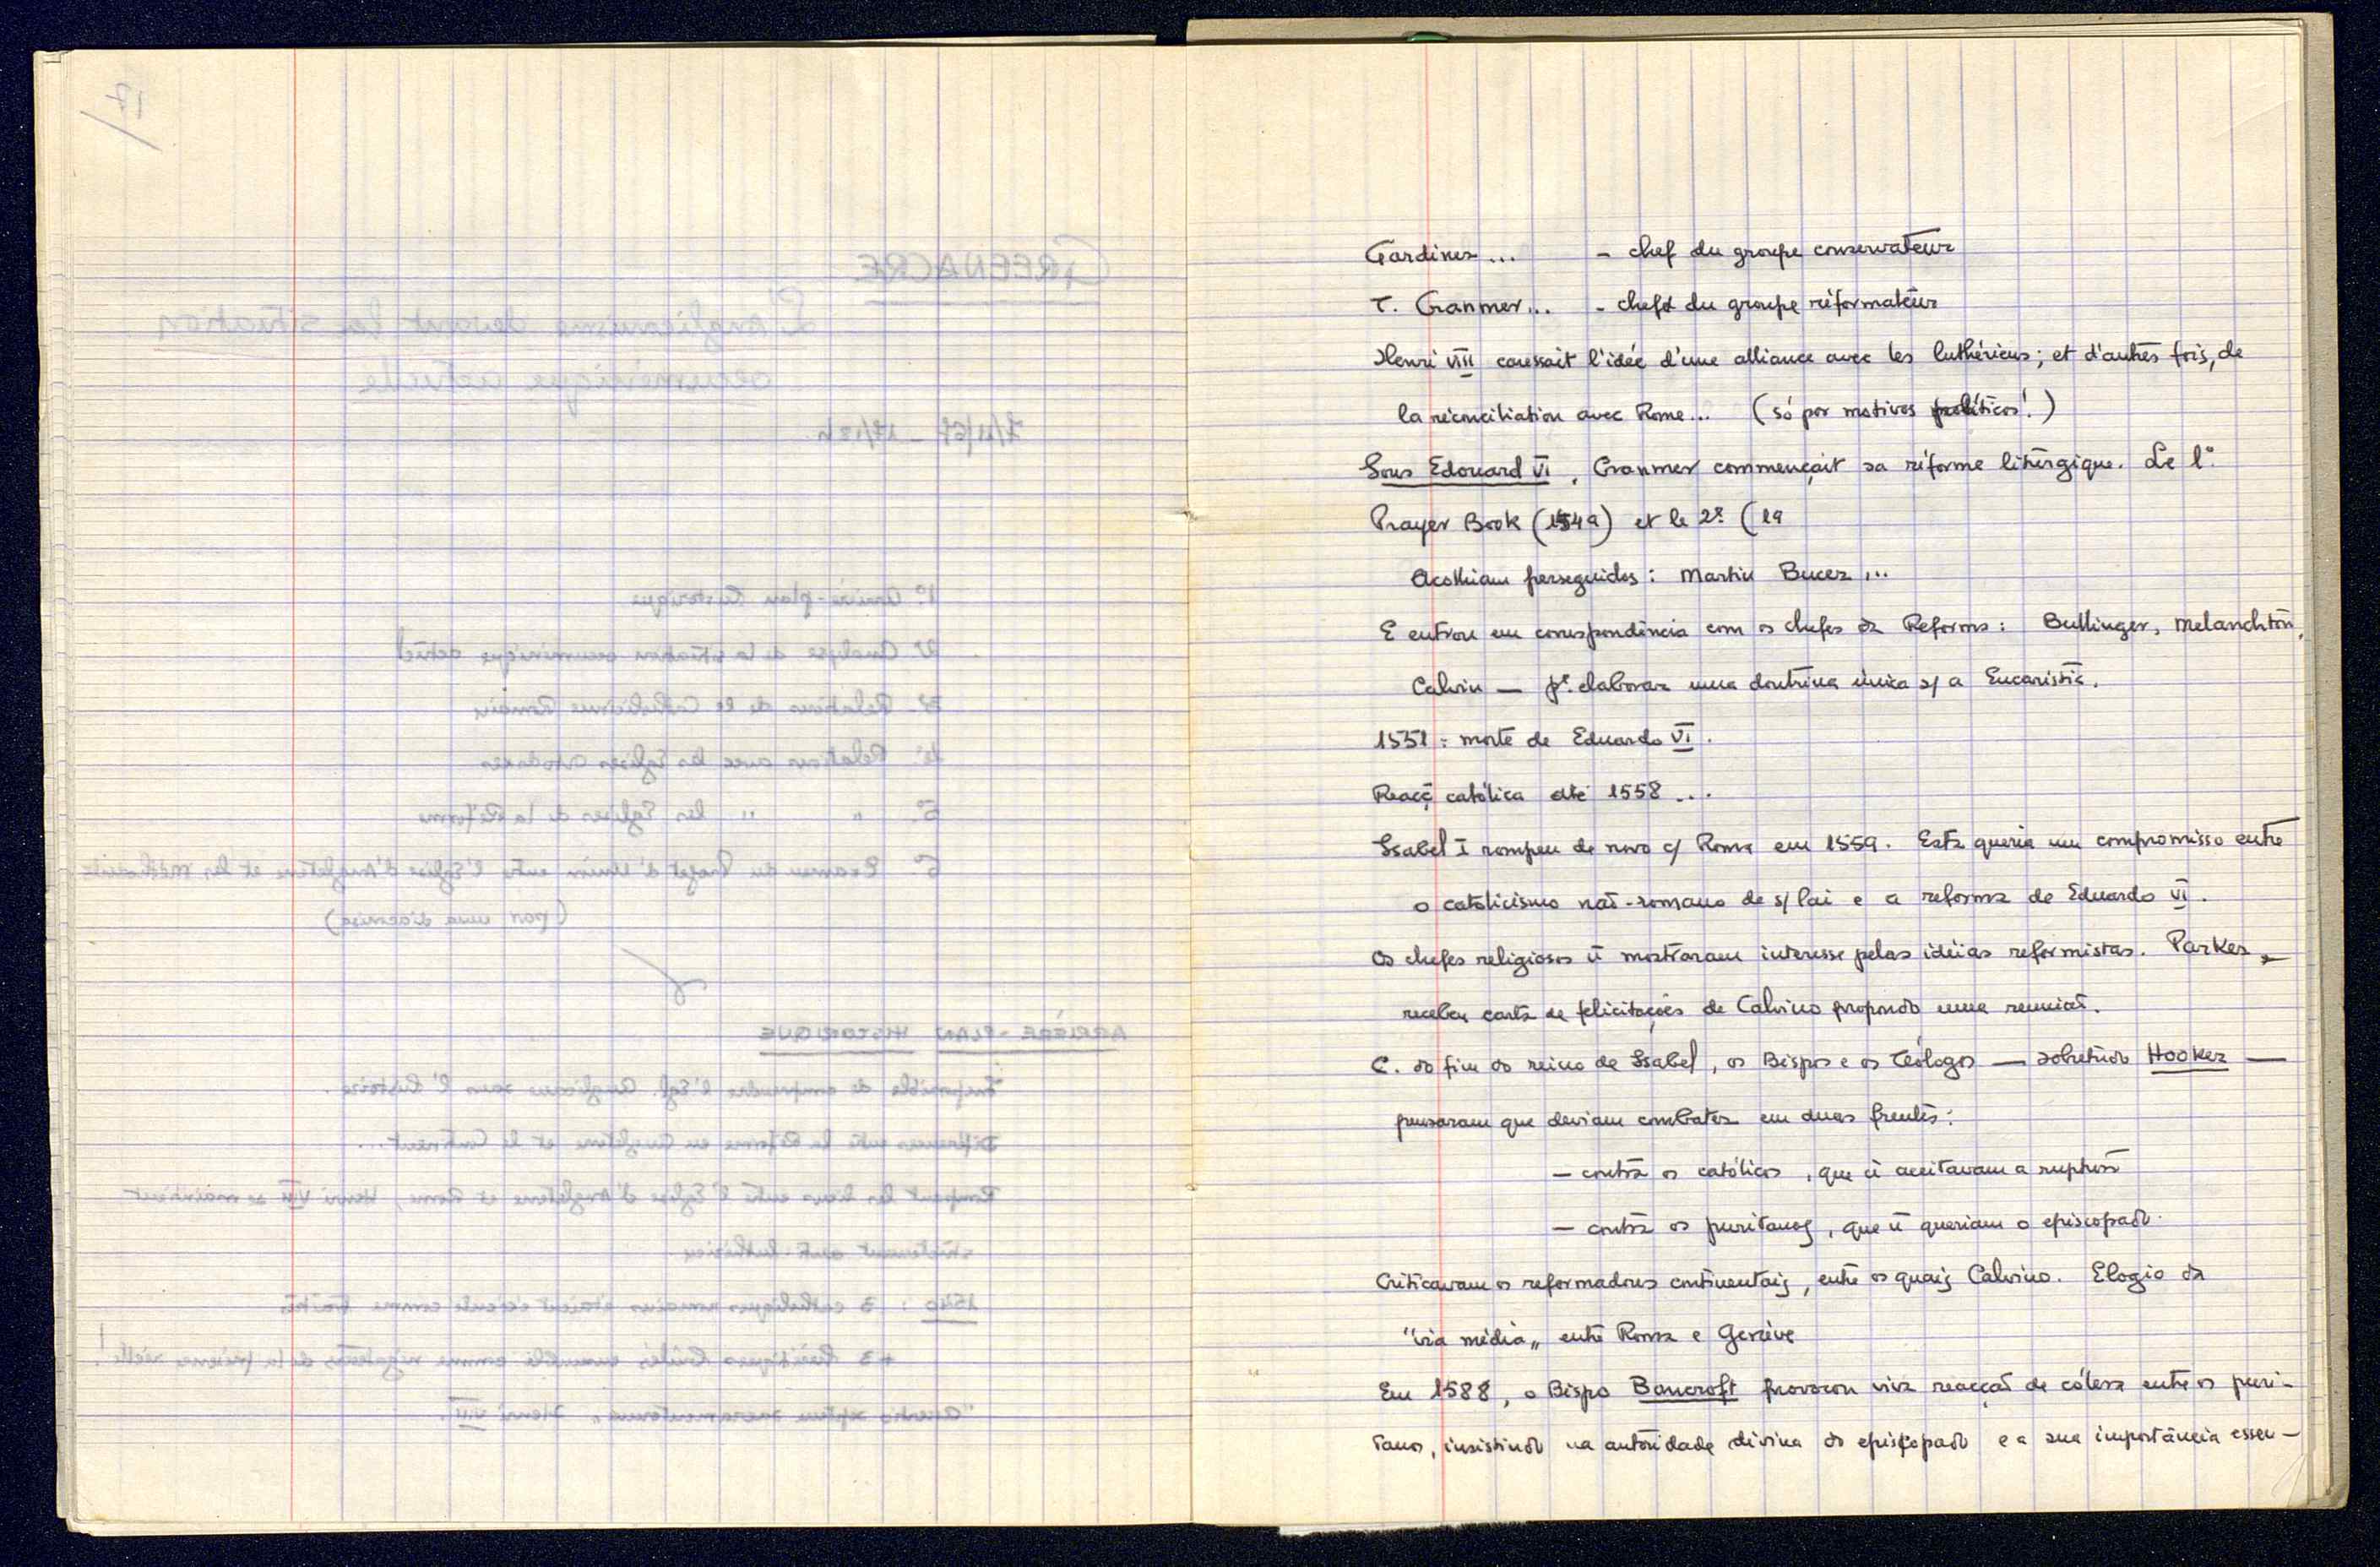 Gardiner... - chef du groupe conservateur
T. Cranmer... - chef du groupe réformateur
Henri VIII caressait l'idée d'une alliance avec les luthériens; et d'autres fois, de
la réconciliation avec Rome... (só por motivos políticos!)
Sous Edouard VI, Cranmer commençait sa réforme liturgique. Le 1º
Prayer Book (1549) et le 2º (19
Acolhiam perseguidos: Martin Bucer...
E entrou em correspondência com os chefes da Reforma: Bullinger, Melanchton,
Calvin — pª elaborar uma doutrina única s/ a Eucaristia.
1551: morte de Eduardo VI.
Reacç católica até 1558...
Isabel I rompeu de novo c/ Roma em 1559. Esta queria um compromisso entre
o catolicismo não-romano de s/ Pai e a reforma de Eduardo VI.
Os chefes religiosos ñ mostraram interesse pelas idéias reformistas. Parker
recebeu carta de felicitações de Calvino propondo uma reunião.
C. do fim do reino de Isabel, os Bispos e os Teólogos — sobretudo Hooker —
pensaram que deviam combater em duas frentes:
— contra os católicos, que ñ aceitavam a ruptura
— contra os puritanos, que ñ queriam o episcopado.
Criticavam os reformadores continentais, entre os quais Calvino. Elogio da
"via média" entre Roma e Genève
Em 1588, o Bispo Bancroft provocou viva reacção de cólera entre os puri-
tanos, insistindo na autoridade divina do episcopado e a sua importância essen-